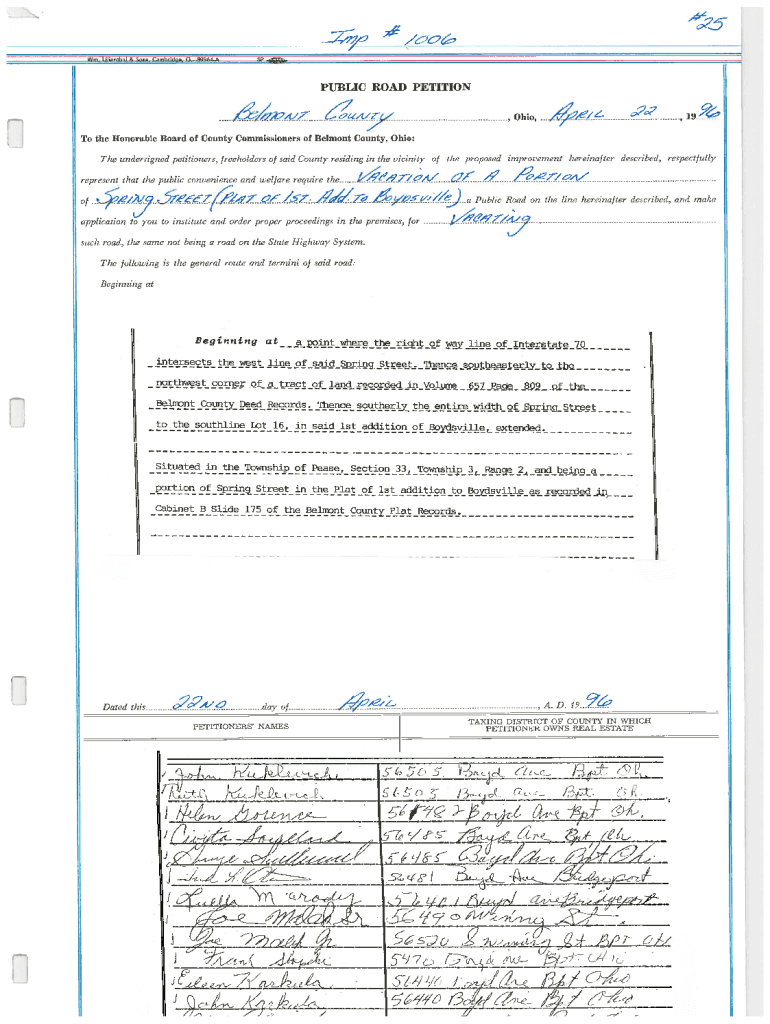 #25
Imp # 1006
Wm. Lilienthal & Sons, Cambridge, O.
SP
PUBLIC ROAD PETITION
Belmont County, Ohio, April 22, 1996
To the Honorable Board of County Commissioners of Belmont County, Ohio:
The undersigned petitioners, freeholders of said County residing in the vicinity of the proposed improvement hereinafter described, respectfully
represent that the public convenience and welfare require the Vacation of a Portion
of Spring Street (Plat of 1st. Add. to Boydsville) a Public Road on the line hereinafter described, and make
application to you to institute and order proper proceedings in the premises, for Vacating
such road, the same not being a road on the State Highway System.
The following is the general route and termini of said road:
Beginning at
Beginning at a point where the right of way line of Interstate 70
intersects the west line of said Spring Street. Thence southeasterly to the
northwest corner of a tract of land recorded in Volume 657 Page 809 of the
Belmont County Deed Records. Thence southerly the entire width of Spring Street
to the southline Lot 16, in said 1st addition of Boydsville, extended.
Situated in the Township of Pease, Section 33, Township 3, Range 2, and being a
portion of Spring Street in the Plat of 1st addition to Boydsville as recorded in
Cabinet B Slide 175 of the Belmont County Plat Records.
Dated this 22nd day of April, A. D. 1996
PETITIONERS' NAMES
TAXING DISTRICT OF COUNTY IN WHICH
PETITIONER OWNS REAL ESTATE
John Kuklevich 56505 Boyd Ave Bpt Oh.
Ruth Kuklevich 56505 Boyd Ave Bpt. Oh.
Helen Boyd Ave Bpt Oh.
56485 Boyd Ave Bpt Oh
56485 Boyd Ave Bpt Ohio
56481 Boyd Ave Bridgeport
Luella 56401 Boyd Ave Bridgeport
Joe Malsh Sr 56490 St.
Joe Malsh Jr 56520 St BPT OH
Frank 5470 Boyd Ave Bpt Ohio
Eileen Kaskula 56440 Boyd Ave Bpt Ohio
John Kaskula 56440 Boyd Ave Bpt Ohio